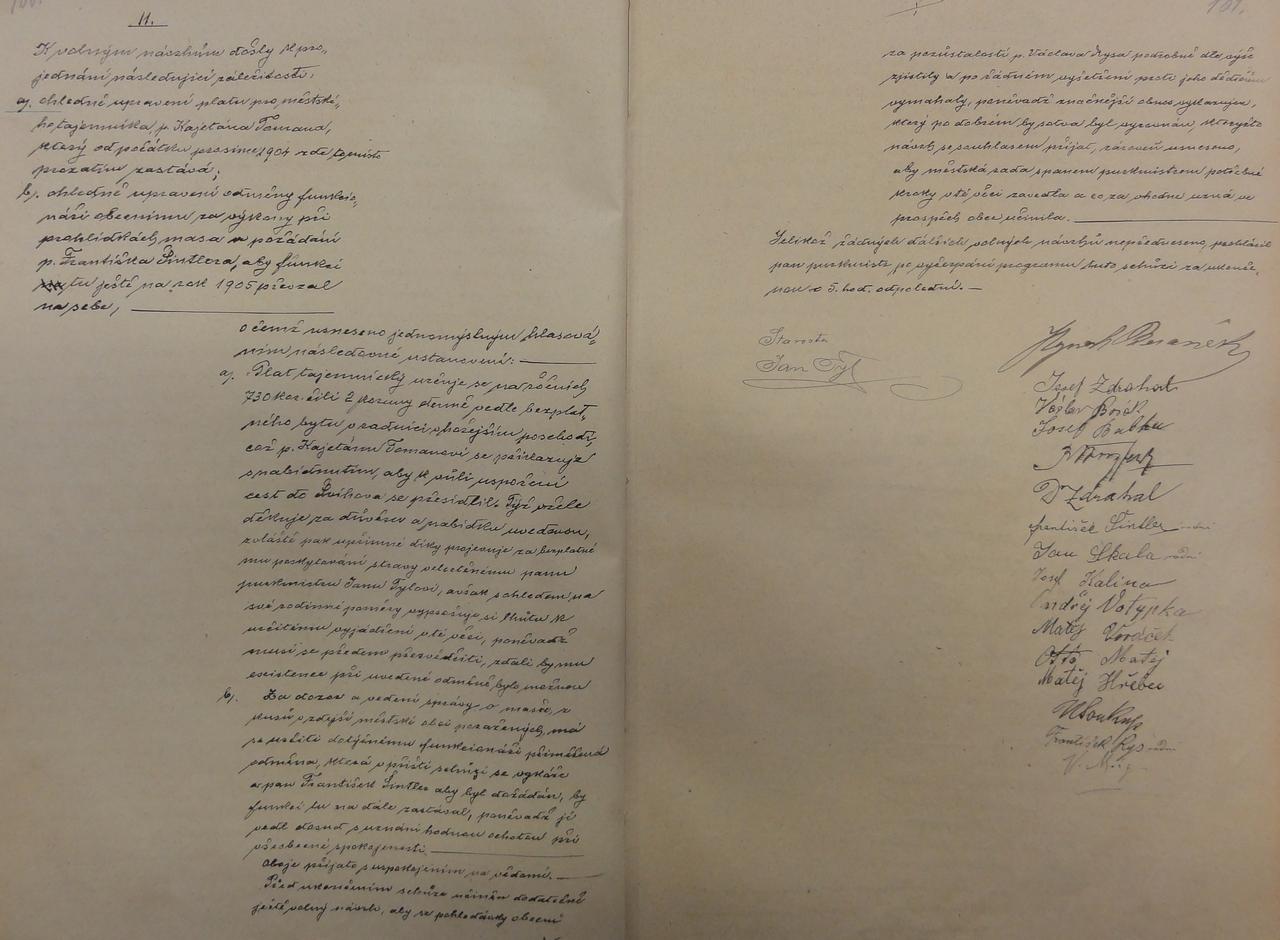 11.
K volným návrhům došly k pro-
jednání následující záležitosti:
a). ohledně upravení platu pro městské-
ho tajemníka, p. Kajetána Tomana,
který od počátku prosince 1904 zde tajemsto
prozatím zastává;
b). ohledně upravení odměny funkcio-
náři obecnímu za výkony při
prohlídkách masa a požádání
p. Františka Šintlera, aby funkci
tu ještě na rok 1905 převzal
na sebe,
o čemž usneseno jednomyslným hlasová-
ním následovné ustanovení:
a). Plat tajemnický určuje se na ročních
730 kor. čili 2 koruny denně vedle bezplat-
ného bytu v radnici v hořejším poschodí,
což p. Kajetánu Tomanovi se přikazuje
s nabídnutím, aby k vůli uspoření
cest do Švihova se přesídlil. Týž vřele
děkuje za důvěru a nabídku uvedenou,
zvláště pak upřímné díky projevuje za bezplatné
mu poskytování stravy velectěnému panu
purkmistru Janu Tylovi, avšak s ohledem na
své rodinné poměry vyprošuje si lhůtu k
určitému vyjádření v té věci, poněvadž
musí se předem přesvědčiti, zdali by mu
existence při uvedené odměně bylo možnou
b). Za dozor a vedení správy o mase, z
kusů v zdejší městské obci poražených, má
se určiti dotyčnému funkcionáři přiměřená
odměna, která v příští schůzi se vykáže
a pan František Šintler aby byl dožádán, by
funkci tu na dále zastával, poněvadž ji
vedl dosud s uznání hodnou ochotou při
všeobecné spokojenosti.
Oboje přijato s uspokojením na vědomí.
Před ukončením schůze učiněn dodatečně
ještě volný návrh, aby se pohledávky obecní
za pozůstalostí p. Václava Rysa podrobně dle výše
zjistily a po řádném vyšetření proti jeho dědicům
vymáhaly, poněvadž značnější obnos vykazuje,
který po dobrém by sotva byl vyrovnán, kterýžto
návrh se souhlasem přijat, zároveň usneseno,
aby městská rada s panem purkmistrem potřebné
kroky v té věci zavedla a co za vhodné uzná ve
prospěch obce učinila.
Jelikož žádných dalších volných návrhů nepředneseno, prohlásil
pan purkmistr po vyčerpání programu tuto schůzi za ukonče-
nou v 5. hod. odpolední.
Starosta
Jan Tyl
Josef Zdrahal
Václav Bosák
Josef Babka
Dr Zdrahal
František Šintler radní
Jan Skala radní
Josef Kalina
Ondřej Votypka
Matěj Voráček
Otto Matěj
Matěj Hřebec
František Rys radní